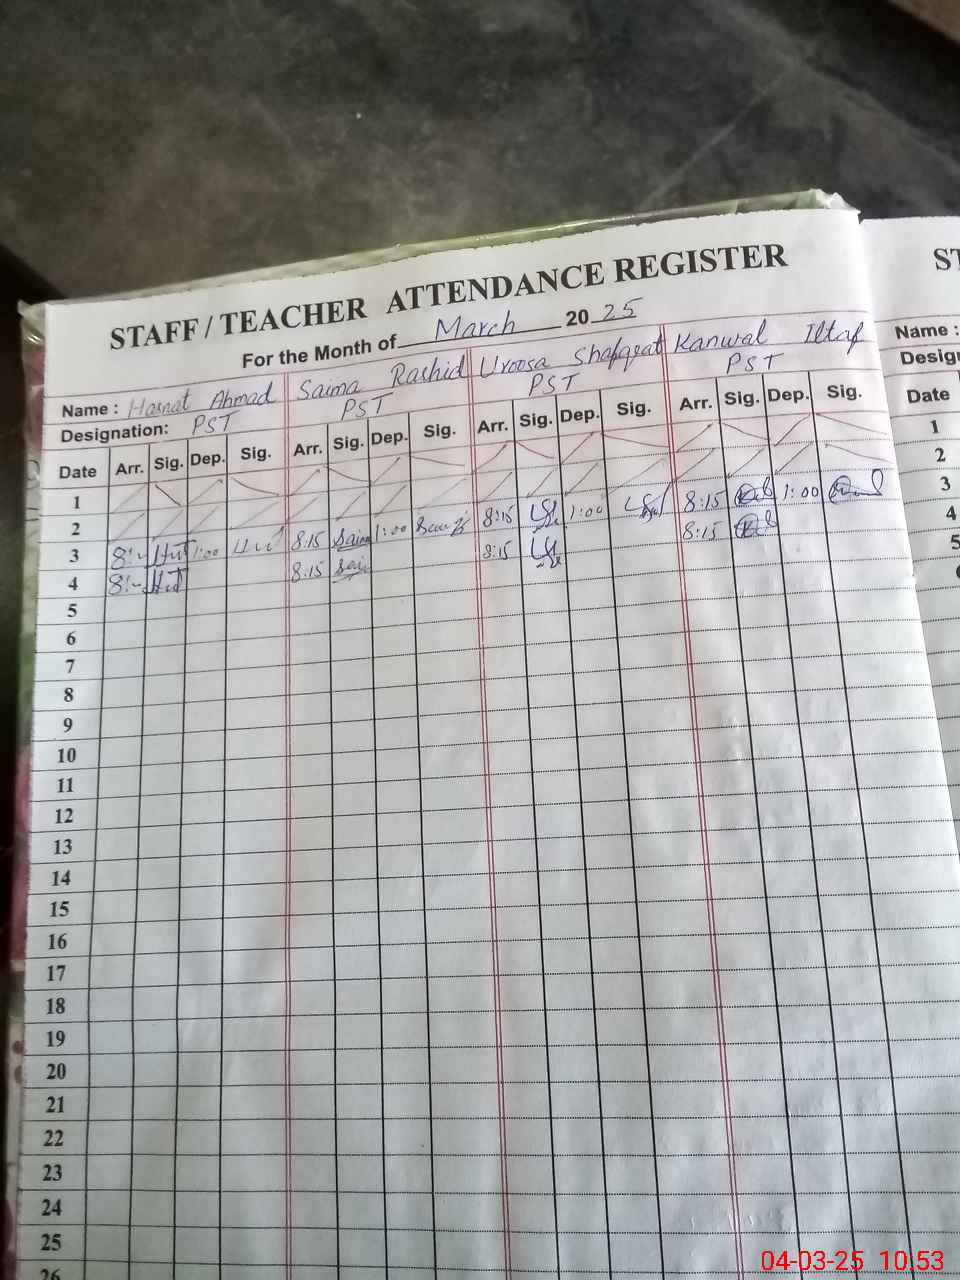 STAFF / TEACHER ATTENDANCE REGISTER
For the Month of March 20 25
Name : Hasnat Ahmad Saima Rashid Uroosa Shafqeat Kanwal Iltaf
Designation: PST PST PST PST
Date Arr. Sig. Dep. Sig. Arr. Sig. Dep. Sig. Arr. Sig. Dep. Sig. Arr. Sig. Dep. Sig.
1
2
3 8:- 1:00 8:15 Saima 1:00 8:15 1:00 8:15 1:00
4 8:- 8:15 8:15 8:15
5
6
7
8
9
10
11
12
13
14
15
16
17
18
19
20
21
22
23
24
25
26
ST
Name :
Design
Date
1
2
3
4
5
04-03-25 10:53